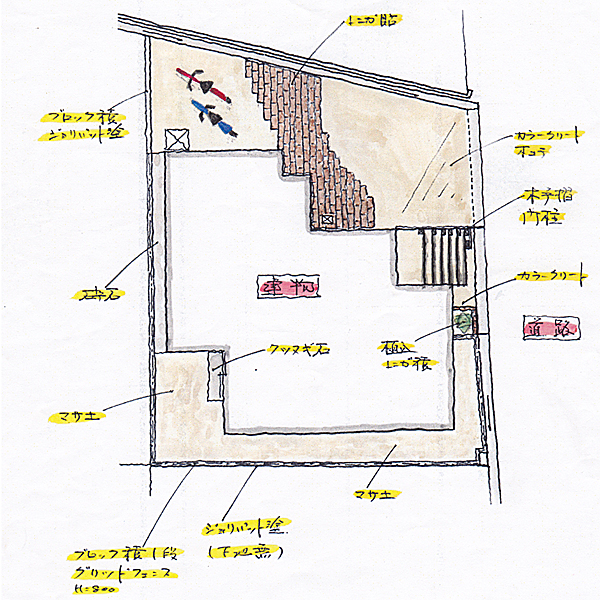 レンガ貼
ブロック積
ジョリパット塗
カラークリート
ボコテ
木手摺
門柱
砕石
建物
カラークリート
道路
クツヌギ石
植込
レンガ積
マサ土
マサ土
ジョリパット塗
(下地無)
ブロック積1段
グリッドフェンス
H=800